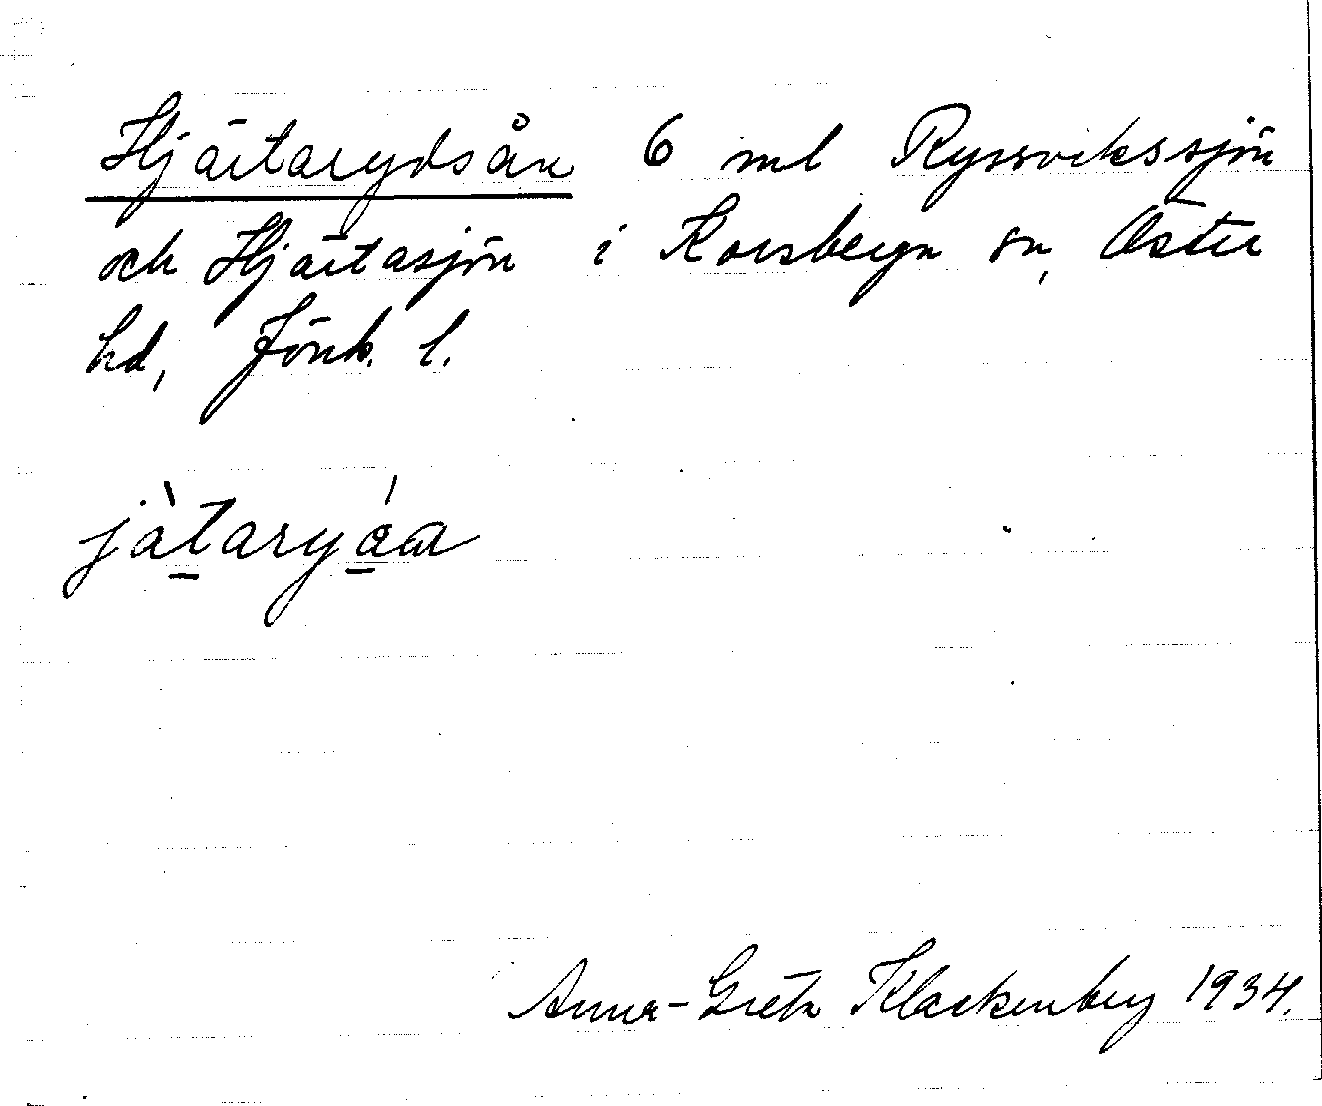 Hjärtarydsån 6 ml Ryssvikssjön
och Hjärtasjön i Korsberga sn, Östra
hd, Jönk. l.
jàtaryáa
Anna-Greta Klackenberg 1934.